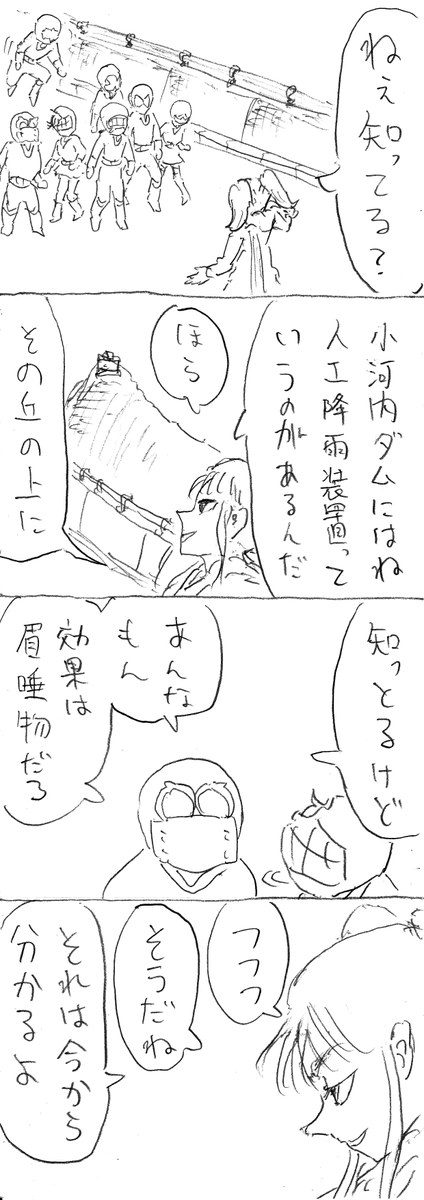 ねぇ知ってる？
小河内ダムにはね
人工降雨装置って
いうのがあるんだ
ほら
その丘の上に
知っとるけど
あんな
もん
効果は
眉唾物だろ
フフフ
そうだね
それは今から
分かるよ